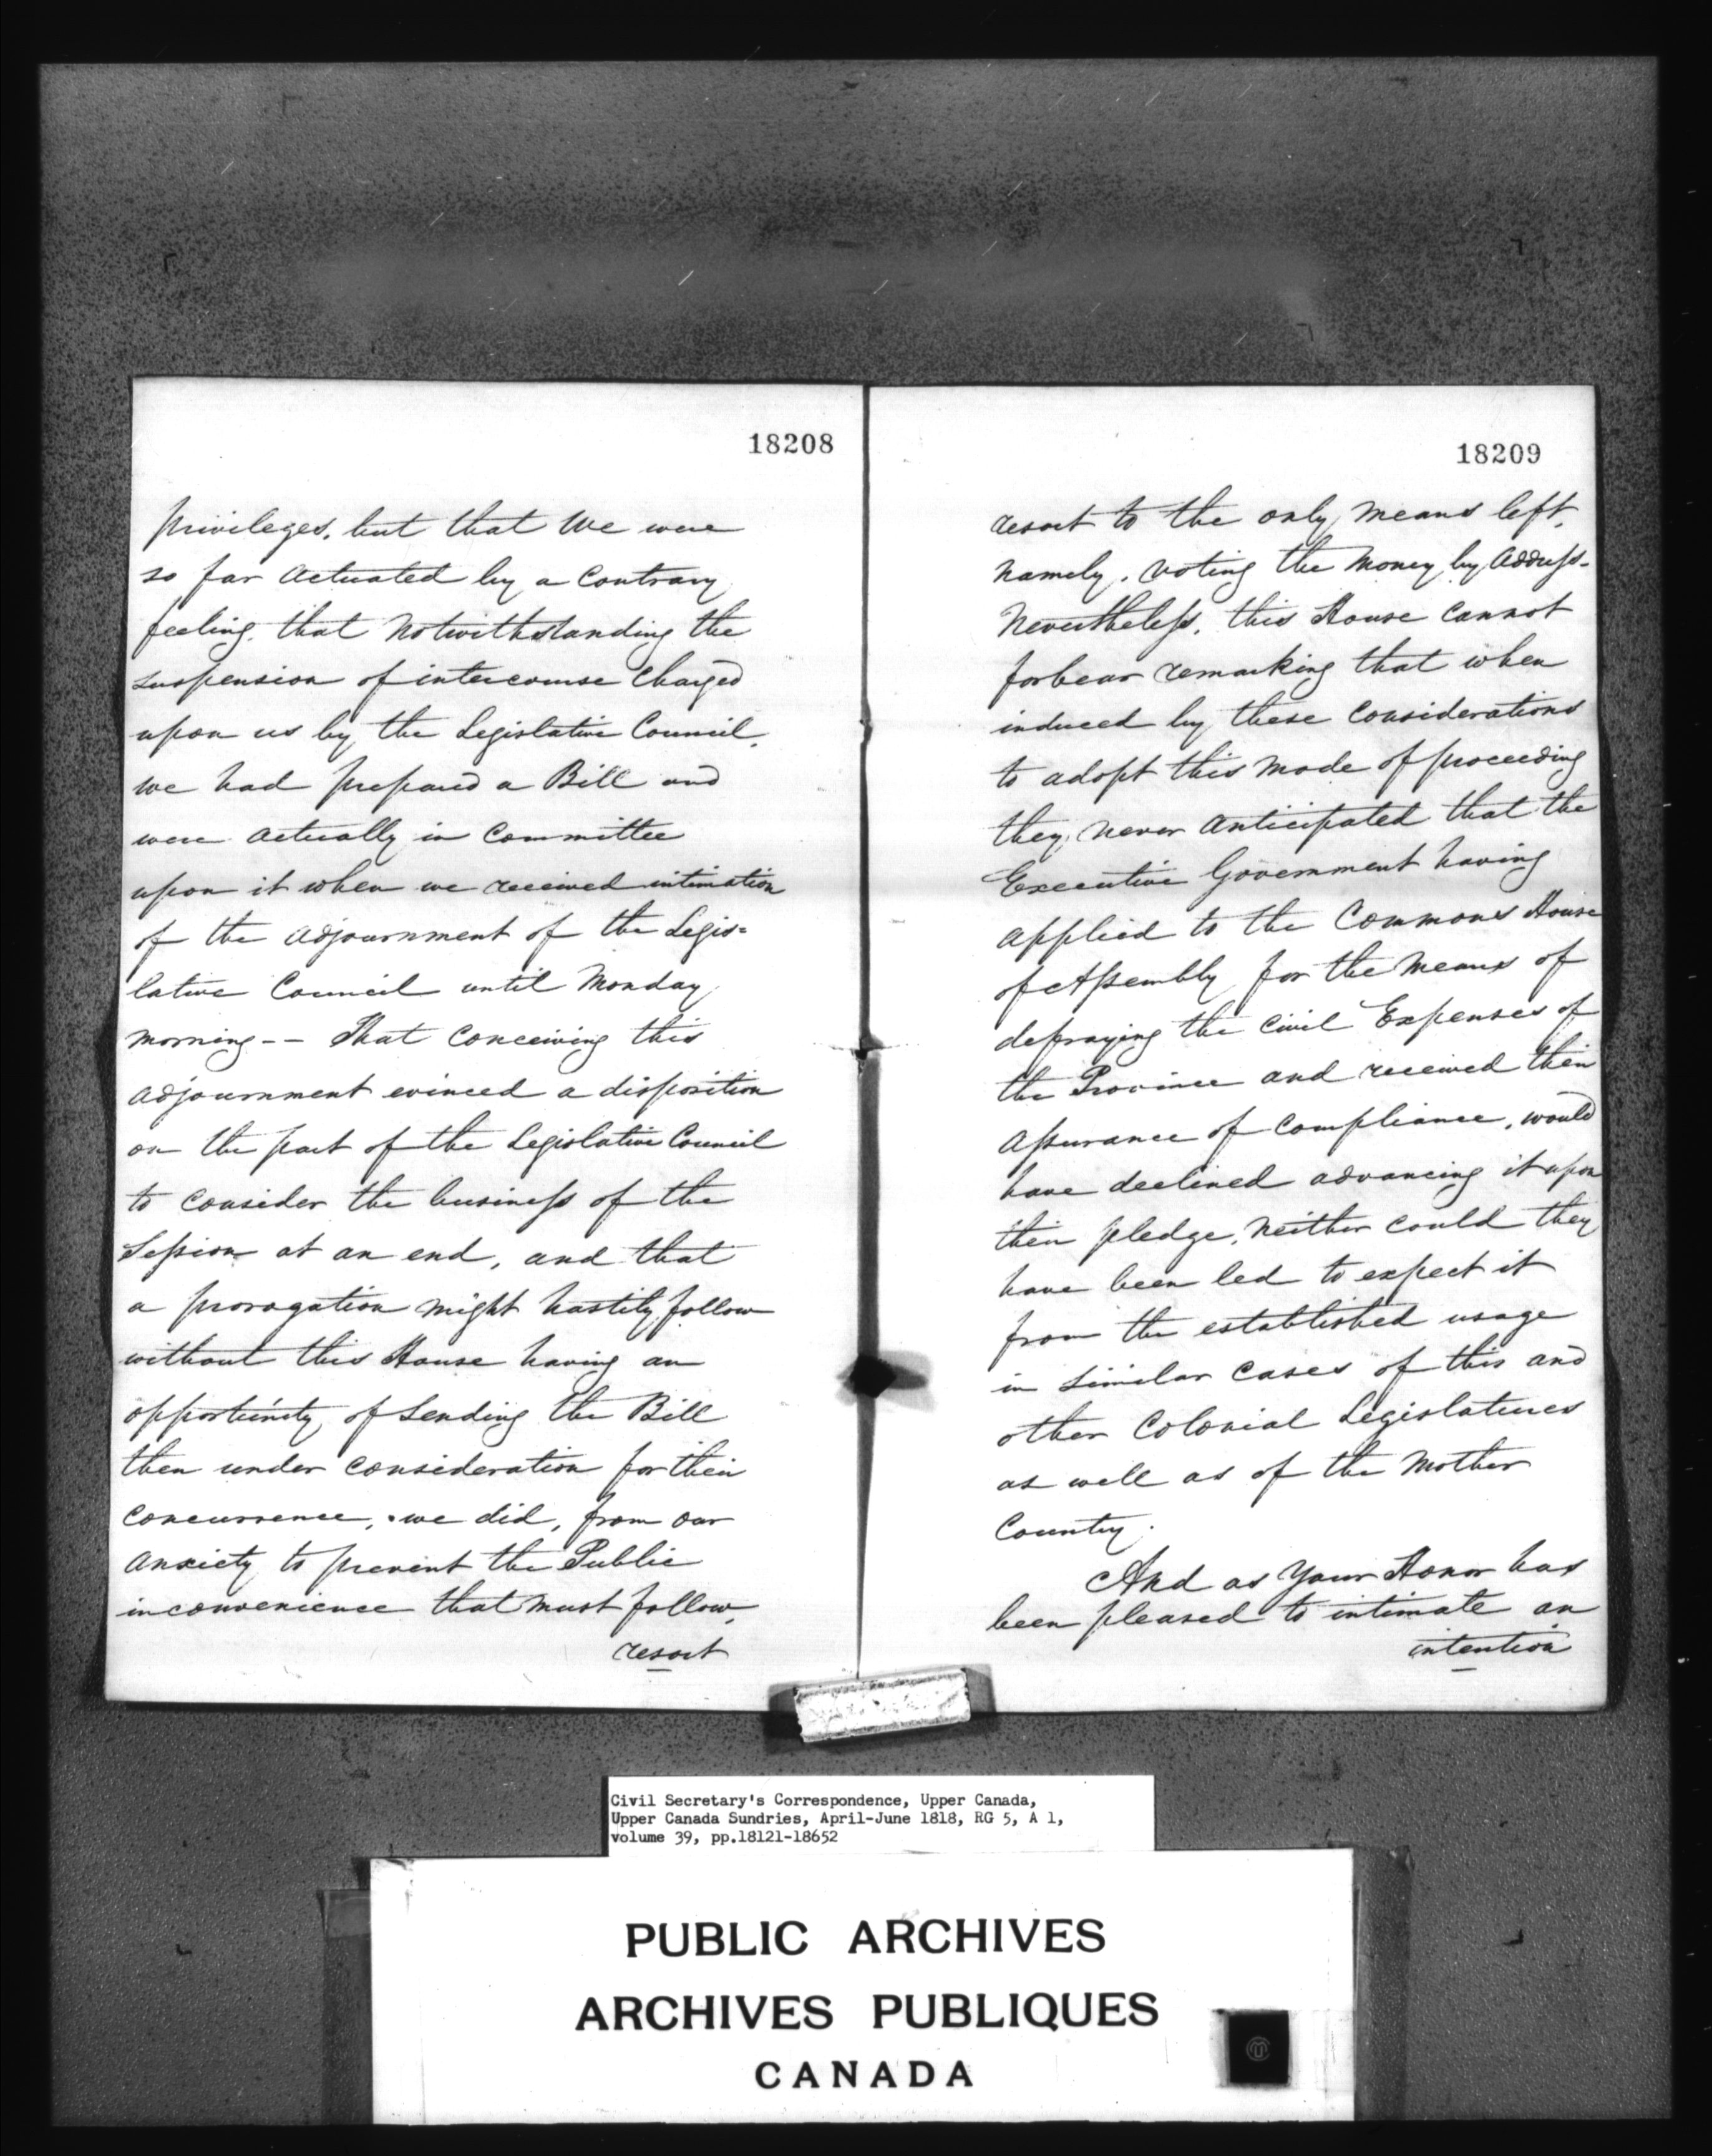 18208
privileges, but that We were
so far actuated by a Contrary
feeling, that Notwithstanding the
suspension of intercourse Charged
upon us by the Legislative Council,
we had prepared a Bill and
were actually in Committee
upon it when we received intimation
of the adjournment of the Legis=
lative Council until Monday
morning -- That Conceiving this
adjournment evinced a disposition
on the part of the Legislative Council
to Consider the business of the
Session at an end, and that
a prorogation might hastily follow
without this House having an
opportunity of Sending the Bill
then under Consideration for their
Concurrence, we did, from our
anxiety to prevent the Public
inconvenience that must follow,
resort
18209
resort to the only means left,
namely, voting the Money by Address.
Nevertheless, this House Cannot
forbear remarking that when
induced by these Considerations
to adopt this mode of proceeding
they never anticipated that the
Executive Government having
applied to the Commons House
of Assembly for the Means of
defraying the Civil Expenses of
the Province and received their
Assurance of Compliance, would
have declined advancing it upon
their pledge, Neither could they
have been led to expect it
from the established usage
in similar Cases of this and
other Colonial Legislatures
as well as of the Mother
Country.
And as Your Honor has
been pleased to intimate an
intention
Civil Secretary's Correspondence, Upper Canada,
Upper Canada Sundries, April-June 1818, RG 5, A 1,
volume 39, pp.18121-18652
PUBLIC ARCHIVES
ARCHIVES PUBLIQUES
CANADA